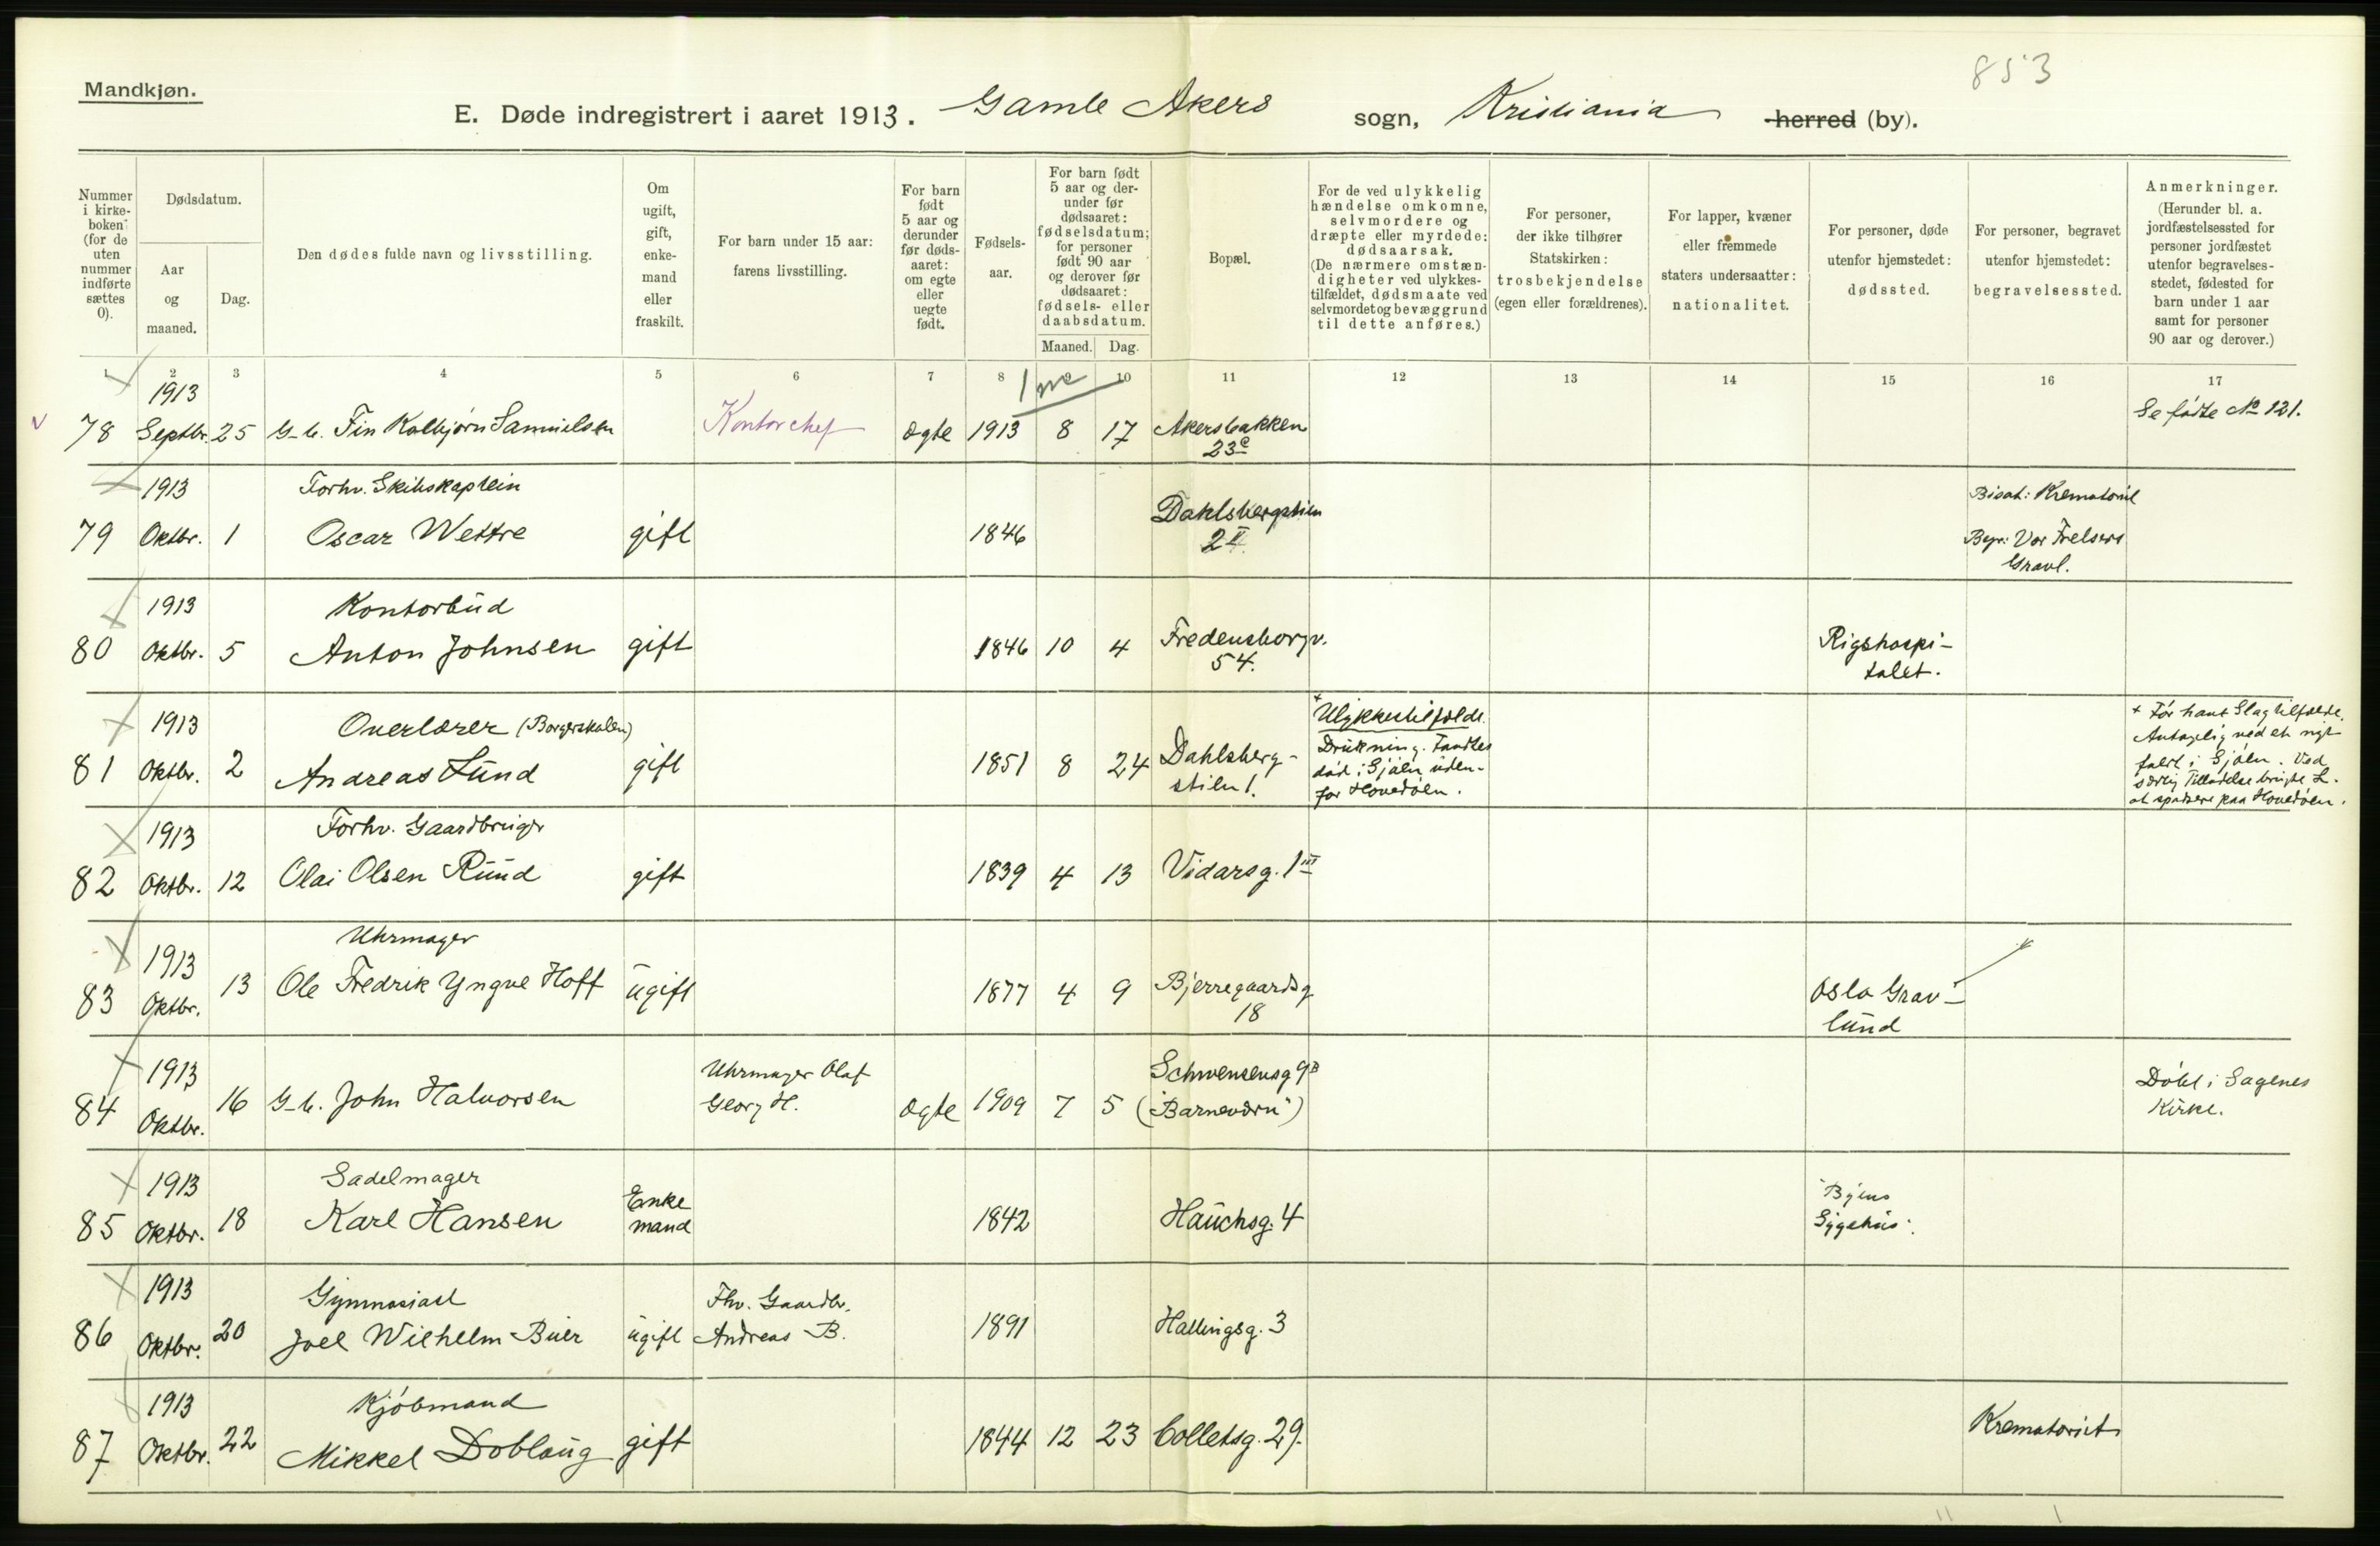 853
Mandkjøn.
E. Døde indregistrert i aaret 1913. Gamle Akers sogn, Kristiania herred (by).
Nummer i kirke-boken (for de uten nummer indførte sættes 0).
Dødsdatum.
Aar og maaned.
Dag.
Den dødes fulde navn og livsstilling.
Om ugift, gift, enke-mand eller fraskilt.
For barn under 15 aar: farens livsstilling.
For barn født 5 aar og derunder før døds-aaret: om egte eller uegte født.
Fødsels-aar.
For barn født 5 aar og der-under før dødsaaret: fødselsdatum; for personer født 90 aar og derover før dødsaaret: fødsels- eller daabsdatum.
Maaned. Dag.
Bopæl.
For de ved ulykkelig hændelse omkomne, selvmordere og dræpte eller myrdede: dødsaarsak. (De nærmere omstæn-digheter ved ulykkes-tilfældet, dødsmaate ved selvmordet og bevæggrund til dette anføres.)
For personer, der ikke tilhører Statskirken: trosbekjendelse (egen eller forældrenes).
For lapper, kvæner eller fremmede staters undersaatter: nationalitet.
For personer, døde utenfor hjemstedet: dødssted.
For personer, begravet utenfor hjemstedet: begravelsessted.
Anmerkninger. (Herunder bl. a. jordfæstelsessted for personer jordfæstet utenfor begravelses-stedet, fødested for barn under 1 aar samt for personer 90 aar og derover.)
1 2 3 4 5 6 7 8 9 10 11 12 13 14 15 16 17
78 1913 Septbr. 25 G-b. Fin Kolbjørn Samuelsen Kontorchef Ægte 1913 8 17 Akersbakken 23c Se fødte No 121.
79 1913 Oktbr. 1 Forhv. Skibskaptein Oscar Wettre gift 1846 Dahlsbergstien 2 II Bisat: Krematoriet Begr: Vor Frelsers Gravl.
80 1913 Oktbr. 5 Kontorbud Anton Johnsen gift 1846 10 4 Fredensborgv. 54. Rigshospi-talet.
81 1913 Oktbr. 2 Overlærer (Borgerskolen) Andreas Lund gift 1851 8 24 Dahlsberg-stien 1. + Ulykkestilfælde. Drukning. Fandtes død i Sjøen uden-for Hovedøen. + Før havt Slagtilfælde. Antagelig ved et nyt faldt i Sjøen. Ved særlig Tilladelse brugte L. at spadsere paa Hovedøen.
82 1913 Oktbr. 12 Forhv. Gaardbruger Olai Olsen Ruud gift 1839 4 13 Vidarsg. 1 III
83 1913 Oktbr. 13 Uhrmager Ole Fredrik Yngve Hoff ugift 1877 4 9 Bjerregaardsg 18 Oslo Grav-lund
84 1913 Oktbr. 16 G-b. John Halvorsen Uhrmager Olaf Georg H. Ægte 1909 7 5 Schwensensg 9B ("Barneværn") Døbt i Sagenes Kirke.
85 1913 Oktbr. 18 Sadelmager Karl Hansen Enke mand 1842 Hauchsg. 4 Byens Sygehus.
86 1913 Oktbr. 20 Gymnasiast Joel Wilhelm Buer ugift Fhv. Gaardbr. Andreas B. 1891 Hallingsg. 3
87 1913 Oktbr. 22 Kjøbmand Mikkel Dobloug gift 1844 12 23 Colletsg. 29. Krematoriet